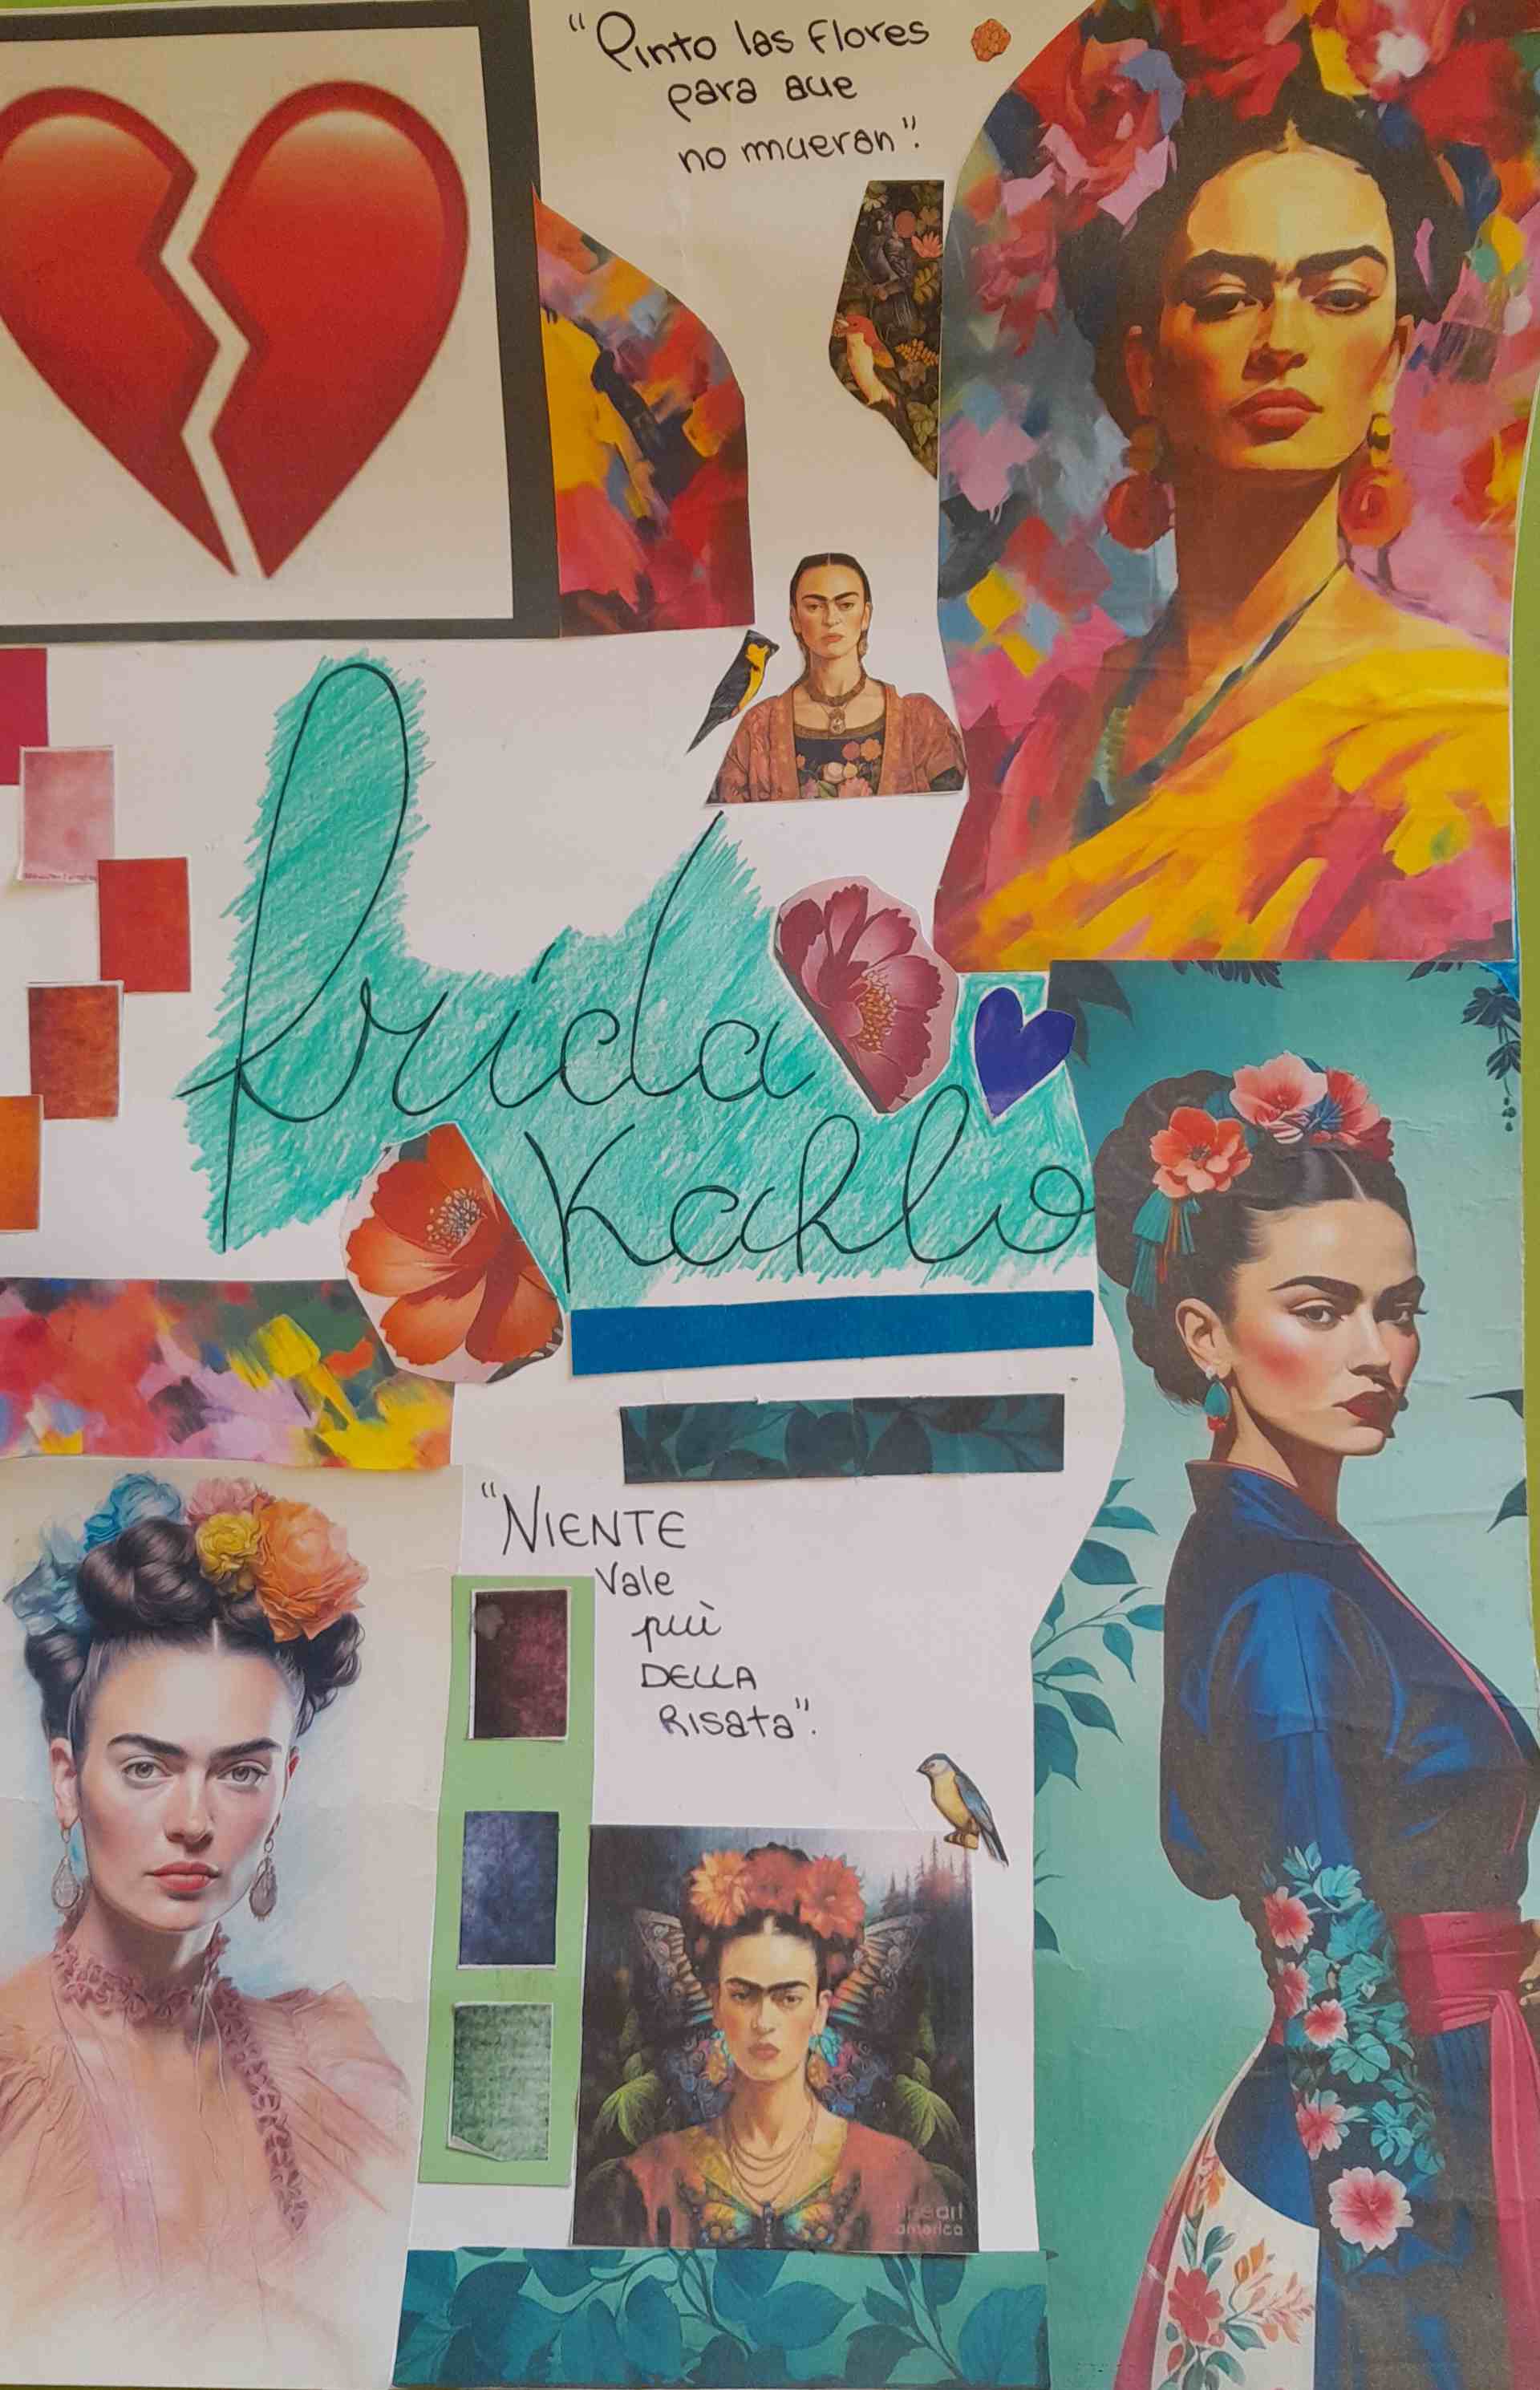 "Pinto las Flores
para aue
no mueran".
frida
Kahlo
"NIENTE
Vale
più
DELLA
Risata".
fineart
america